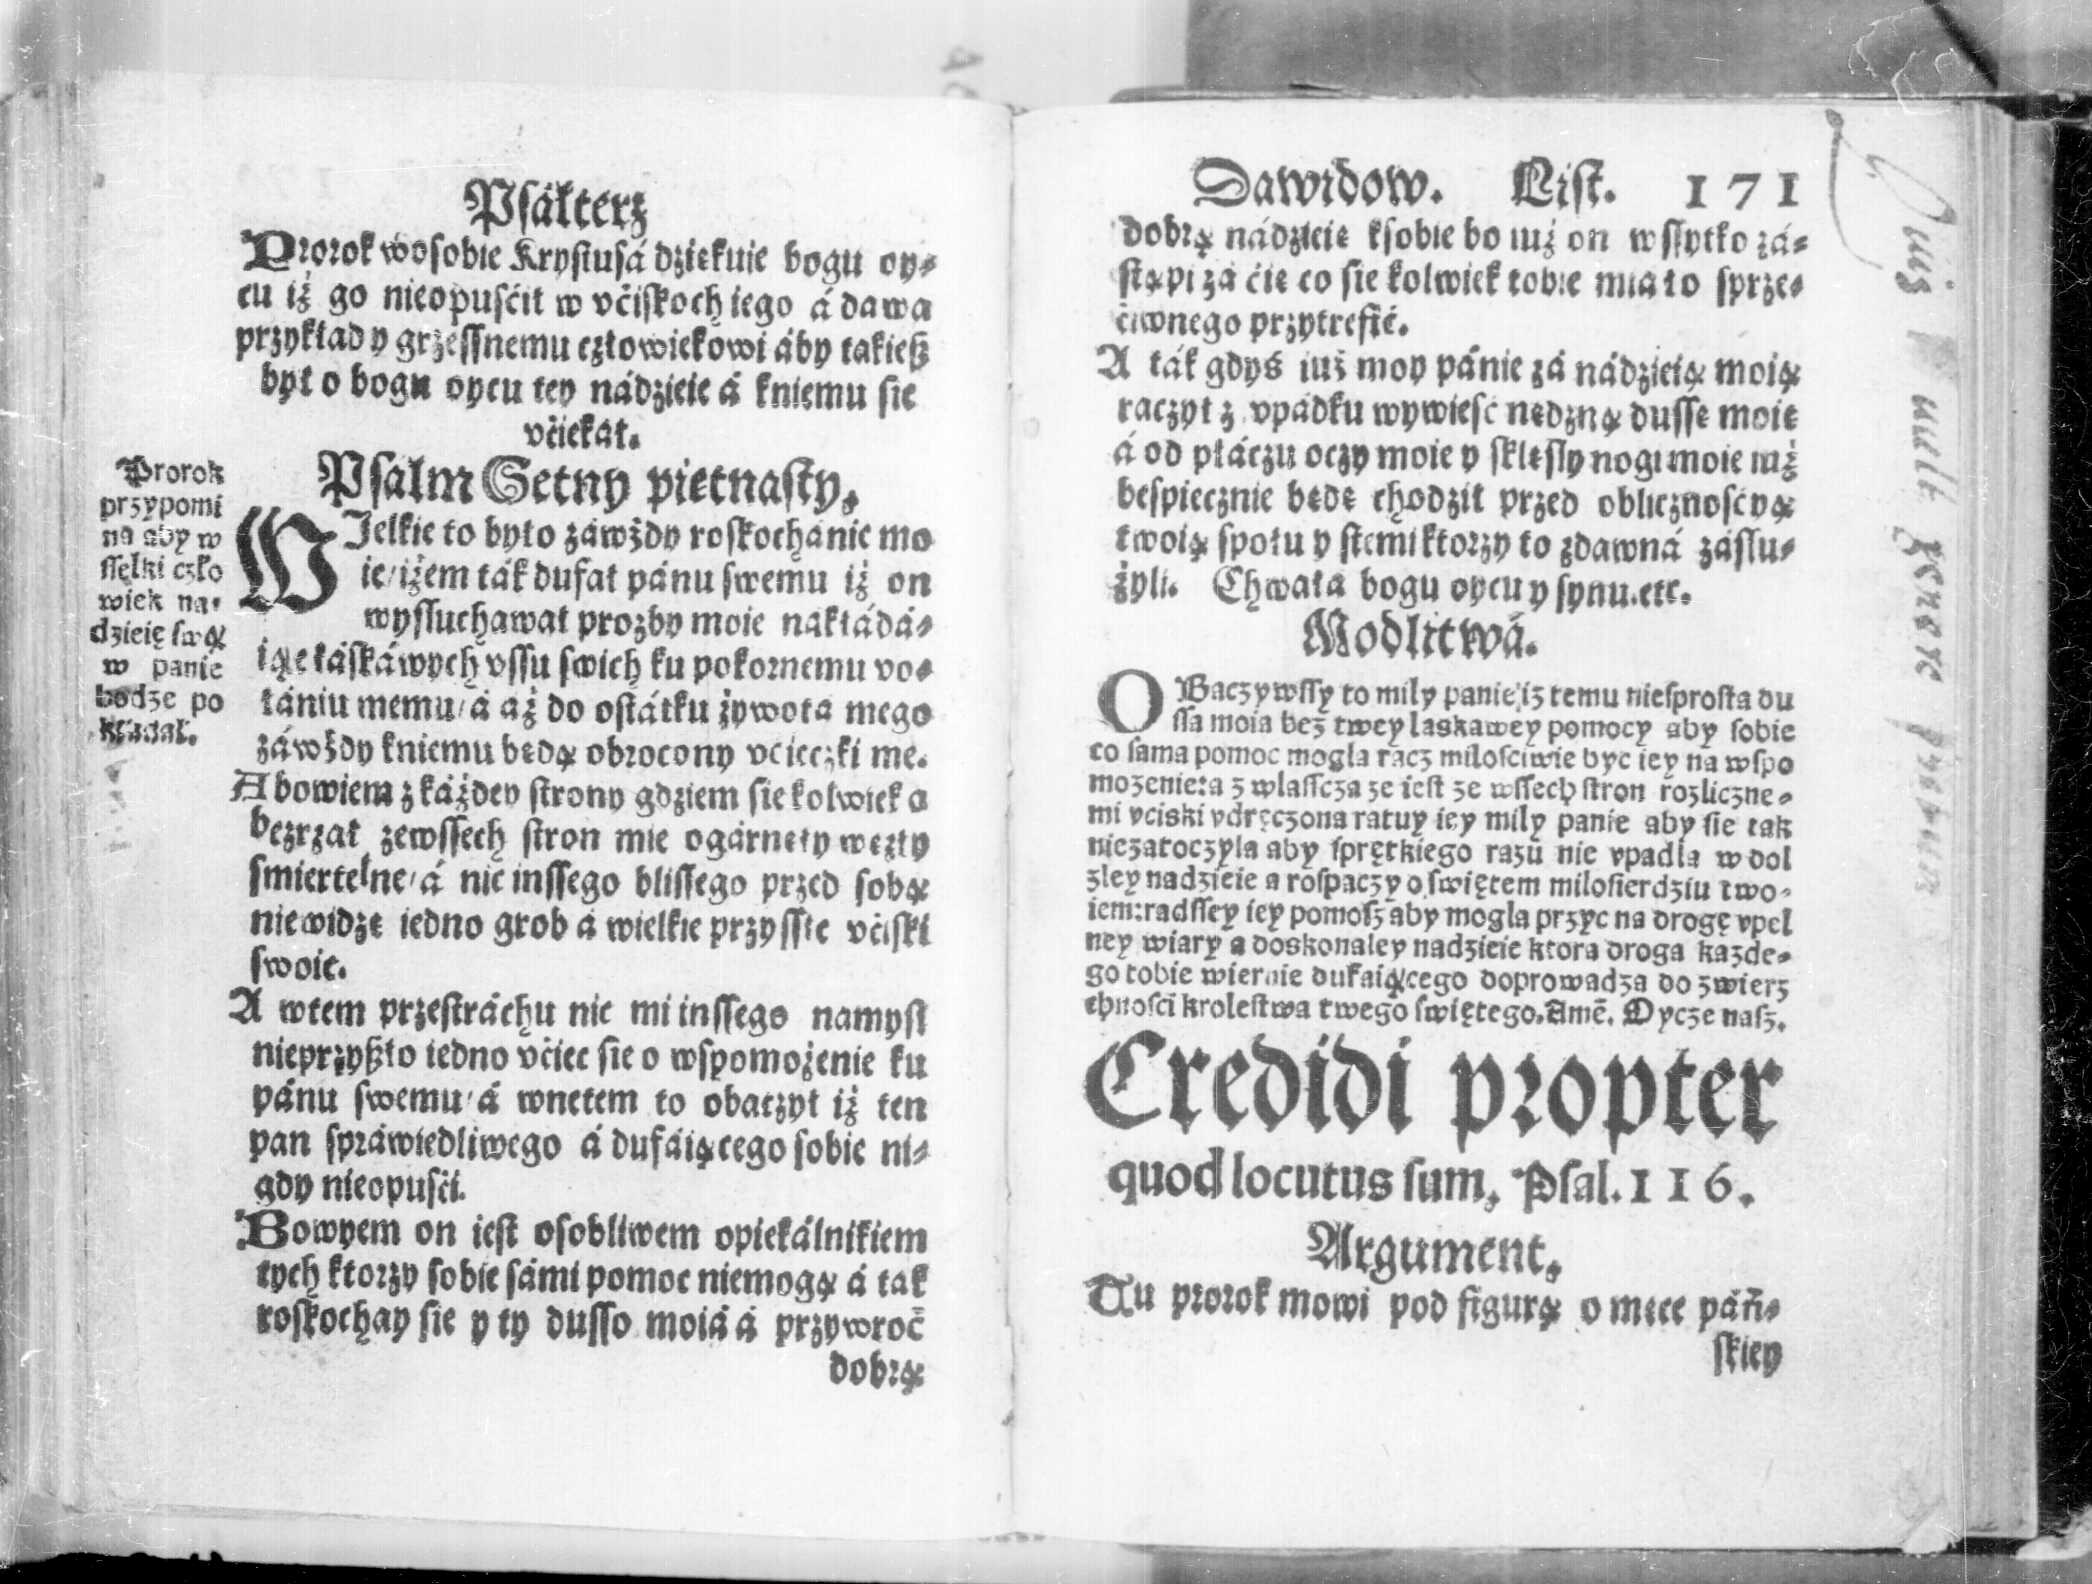 Psálterz
Prorok wosobie Krystusá dziękuie bogu oy⸗
cu iż go nieopuśćił w vćiskoch iego á dawa
przykłady grzessnemu człowiekowi áby takież
był o bogu oycu tey nádzieie á kniemu sie
vćiekał.
Psalm Setny piętnasty.
Prorok
przypomi
na aby w
sselki czło
wiek na⸗
dzieię swą
w panie
bodze po
kładał.
WIelkie to było záwżdy roskochánie mo
ie/ iżem ták dufał pánu swemu iż on
wysłuchawał prozby moie nakłádá⸗
iąc łáskáwych vssu swich ku pokornemu vo⸗
łániu memu/ á aż do ostátku żywota mego
záwżdy kniemu będą obrocony vcieczki me.
Abowiem z káżdey strony gdziem sie kolwiek o
bezrzał zewssech stron mie ogárnęły węzły
smiertelne/ á nic inssego blissego przed sobą
niewidzę iedno grob á wielkie przyssłe vćiski
swoie.
A wtem przestráchu nic mi inssego namysl
nieprzyszło iedno vćiec sie o wspomożenie ku
pánu swemu/ á wnetem to obaczył iż ten
pan spráwiedliwego á dufáiącego sobie ni⸗
gdy nieopuśći.
Bowyem on iest osobliwem opiekálnikiem
tych ktorzy sobie sámi pomoc niemogą á tak
roskochay sie y ty dusso moiá á przywroć
dobrą
Dawidow. List. 171
dobrą nádzieię ksobie bo iuż on wssytko zá⸗
stąpi zá cię co sie kolwiek tobie miáło sprze⸗
ciwnego przytrefić.
A ták gdyś iuż moy pánie zá nádzieią moią
raczył z vpadku wywieść nędzną dussę moię
á od płáczu oczy moie y sklęsły nogi moie iuż
bespiecznie będę chodził przed oblicznośćyą
twoią społu y stemi ktorzy to zdawná zásłu⸗
żyli. Chwała bogu oycu y synu. etc.
Modlitwá.
OBaczywssy to mily panie iz temu niesprosta du
ssa moia bez twey laskawey pomocy aby sobie
co sama pomoc mogla racz milosciwie byc iey na wspo
mozenie: a z wlasscza ze iest ze wssech stron rozliczne⸗
mi vciski vdręczona ratuy iey mily panie aby sie tak
niezatoczyla aby sprętkiego razu nie vpadla w dol
zley nadzieie a rospaczy o swiętem milosierdziu two⸗
iem: radssey iey pomosz aby mogla przyc na drogę vpel
ney wiary a doskonaley nadzieie ktora droga kazde⸗
go tobie wiernie dufaiącego doprowadza do zwierz
chnosci krolestwa twego swiętego. Amē. Oycze nasz.
Credidi propter
quod locutus sum. Psal. 116.
Argument.
Tu prorok mowi pod figurą o męce páń⸗
skiey